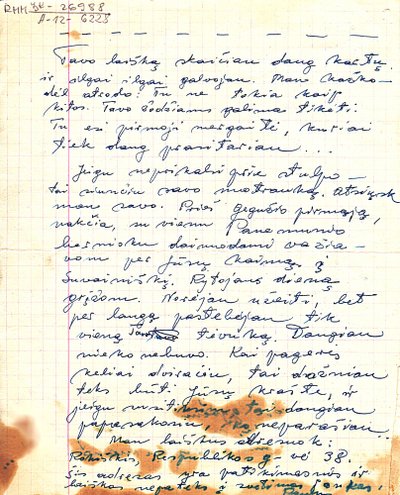 RMM ŽK - 26988
A-12- 6223
Tavo laišką skaičiau daug kartų
ir ilgai ilgai galvojau. Man kažko-
dėl atrodo: Tu ne tokia kaip
kitos. Tavo žodžiams galima tikėti.
Tu esi pirmoji mergaitė, kuriai
tiek daug prasitariau ...
Jeigu neprikalbi prie stulpo -
tai siunčiu savo nuotrauką. Atsiųsk
man savo. Prieš gegužio pirmąją,
nakčia, su vienu Panemunio
berniuku dainuodami važia-
vom per Jūsų kaimą, į
Suvainiškį. Rytojaus dieną
grįžom. Norėjau užeiti, bet
per langą pastebėjau tik
vieną tėvuką. Daugiau
nieko nebuvo. Kai pagerės
keliai dviračiu, tai dažniau
teks būti Jūsų krašte, ir
jeigu tai daugiau
papasakosiu, ko neparašiau.
Man laiškus adresuok:
Rokiškis, Respublikos g-vė 38.
Šis adresas yra patikimesnis ir
laiškas nepateks į svetimas rankas.